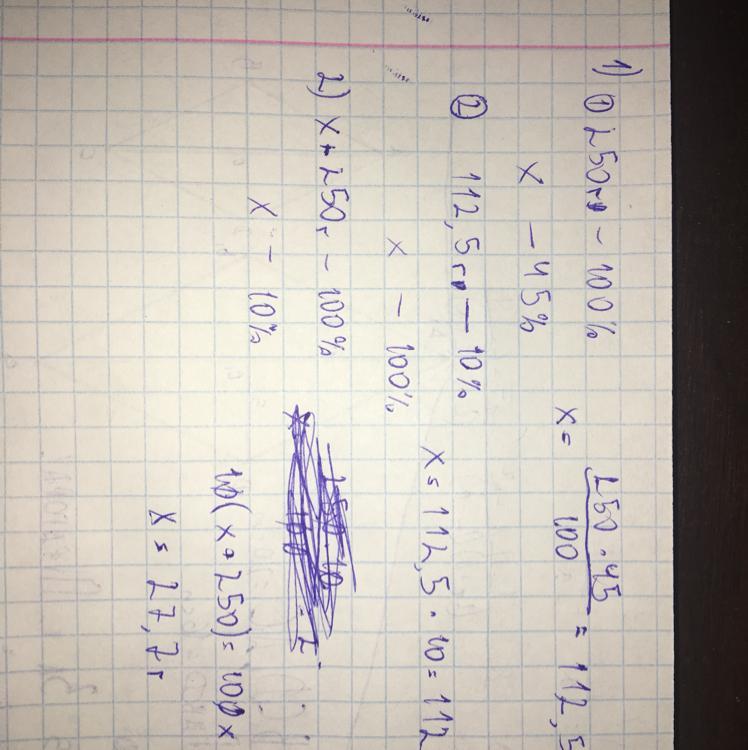 1) ① 250г - 100%
x - 45%
x = 250 · 45 / 100 = 112,5
② 112,5г - 10%
x - 100%
x = 112,5 · 10 = 112
2) x + 250г - 100%
x - 10%
10(x + 250) = 100x
x = 27,7г